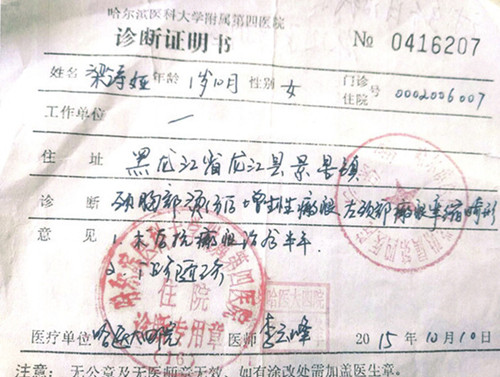 哈尔滨医科大学附属第四医院
诊断证明书 № 0416207
姓名 梁诗娅 年龄 1岁10月 性别 女 门诊 住院 号 0002006007
工作单位 一
住址 黑龙江省龙江县景星镇
诊断 颈胸部烫伤后增生性瘢痕 左颈部瘢痕挛缩畸形
意见 1. 来医院瘢痕治疗半年
2.
住院
诊断专用章
(16)
医疗单位 哈医大四院 医师 李云峰 2015年10月10日
注意: 无公章及无医师章无效,如有涂改处需加盖医生章。